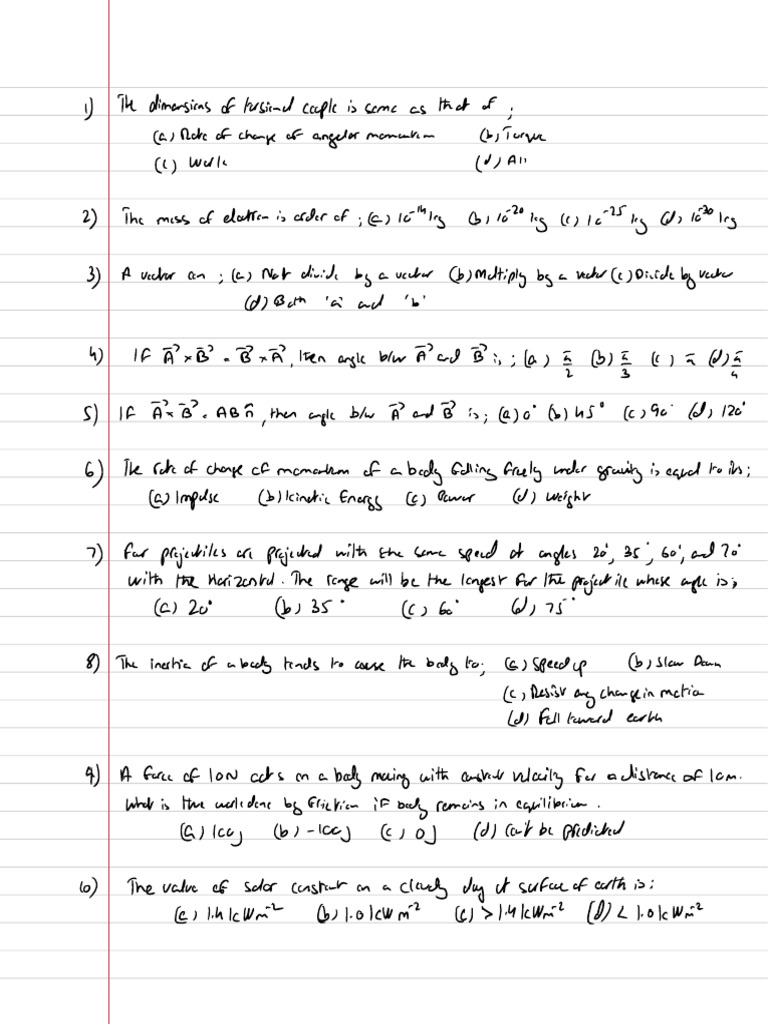 1) The dimensions of torsional couple is same as that of ;
(a) Rate of change of angular momentum (b) Torque
(c) Work (d) All
2) The mass of electron is order of ; (a) 10⁻¹⁴ kg (b) 10⁻²⁰ kg (c) 10⁻²⁵ kg (d) 10⁻³⁰ kg
3) A vector can ; (a) Not divide by a vector (b) Multiply by a vector (c) Divide by vector
(d) Both 'a' and 'b'
4) If A⃗ × B⃗ = B⃗ × A⃗, then angle b/w A⃗ and B⃗ is ; (a) π/2 (b) π/3 (c) π (d) π/4
5) If A⃗ × B⃗ = AB n̂, then angle b/w A⃗ and B⃗ is ; (a) 0° (b) 45° (c) 90° (d) 120°
6) The rate of change of momentum of a body falling freely under gravity is equal to its ;
(a) Impulse (b) kinetic Energy (c) Power (d) weight
7) Four projectiles are projected with the same speed at angles 20°, 35°, 60°, and 70°
with the Horizontal. The range will be the largest for the projectile whose angle is ;
(a) 20° (b) 35° (c) 60° (d) 75°
8) The inertia of a body tends to cause the body to ; (a) Speed up (b) Slow Down
(c) Resist any change in motion
(d) Fall toward earth
9) A force of 10N acts on a body moving with constant velocity for a distance of 10m.
What is the workdone by friction if body remains in equilibrium.
(a) 100J (b) -100J (c) 0J (d) can't be predicted
10) The value of solar constant on a cloudy day at surface of earth is :
(a) 1.4 kWm⁻² (b) 1.0 kWm⁻² (c) > 1.4 kWm⁻² (d) < 1.0 kWm⁻²